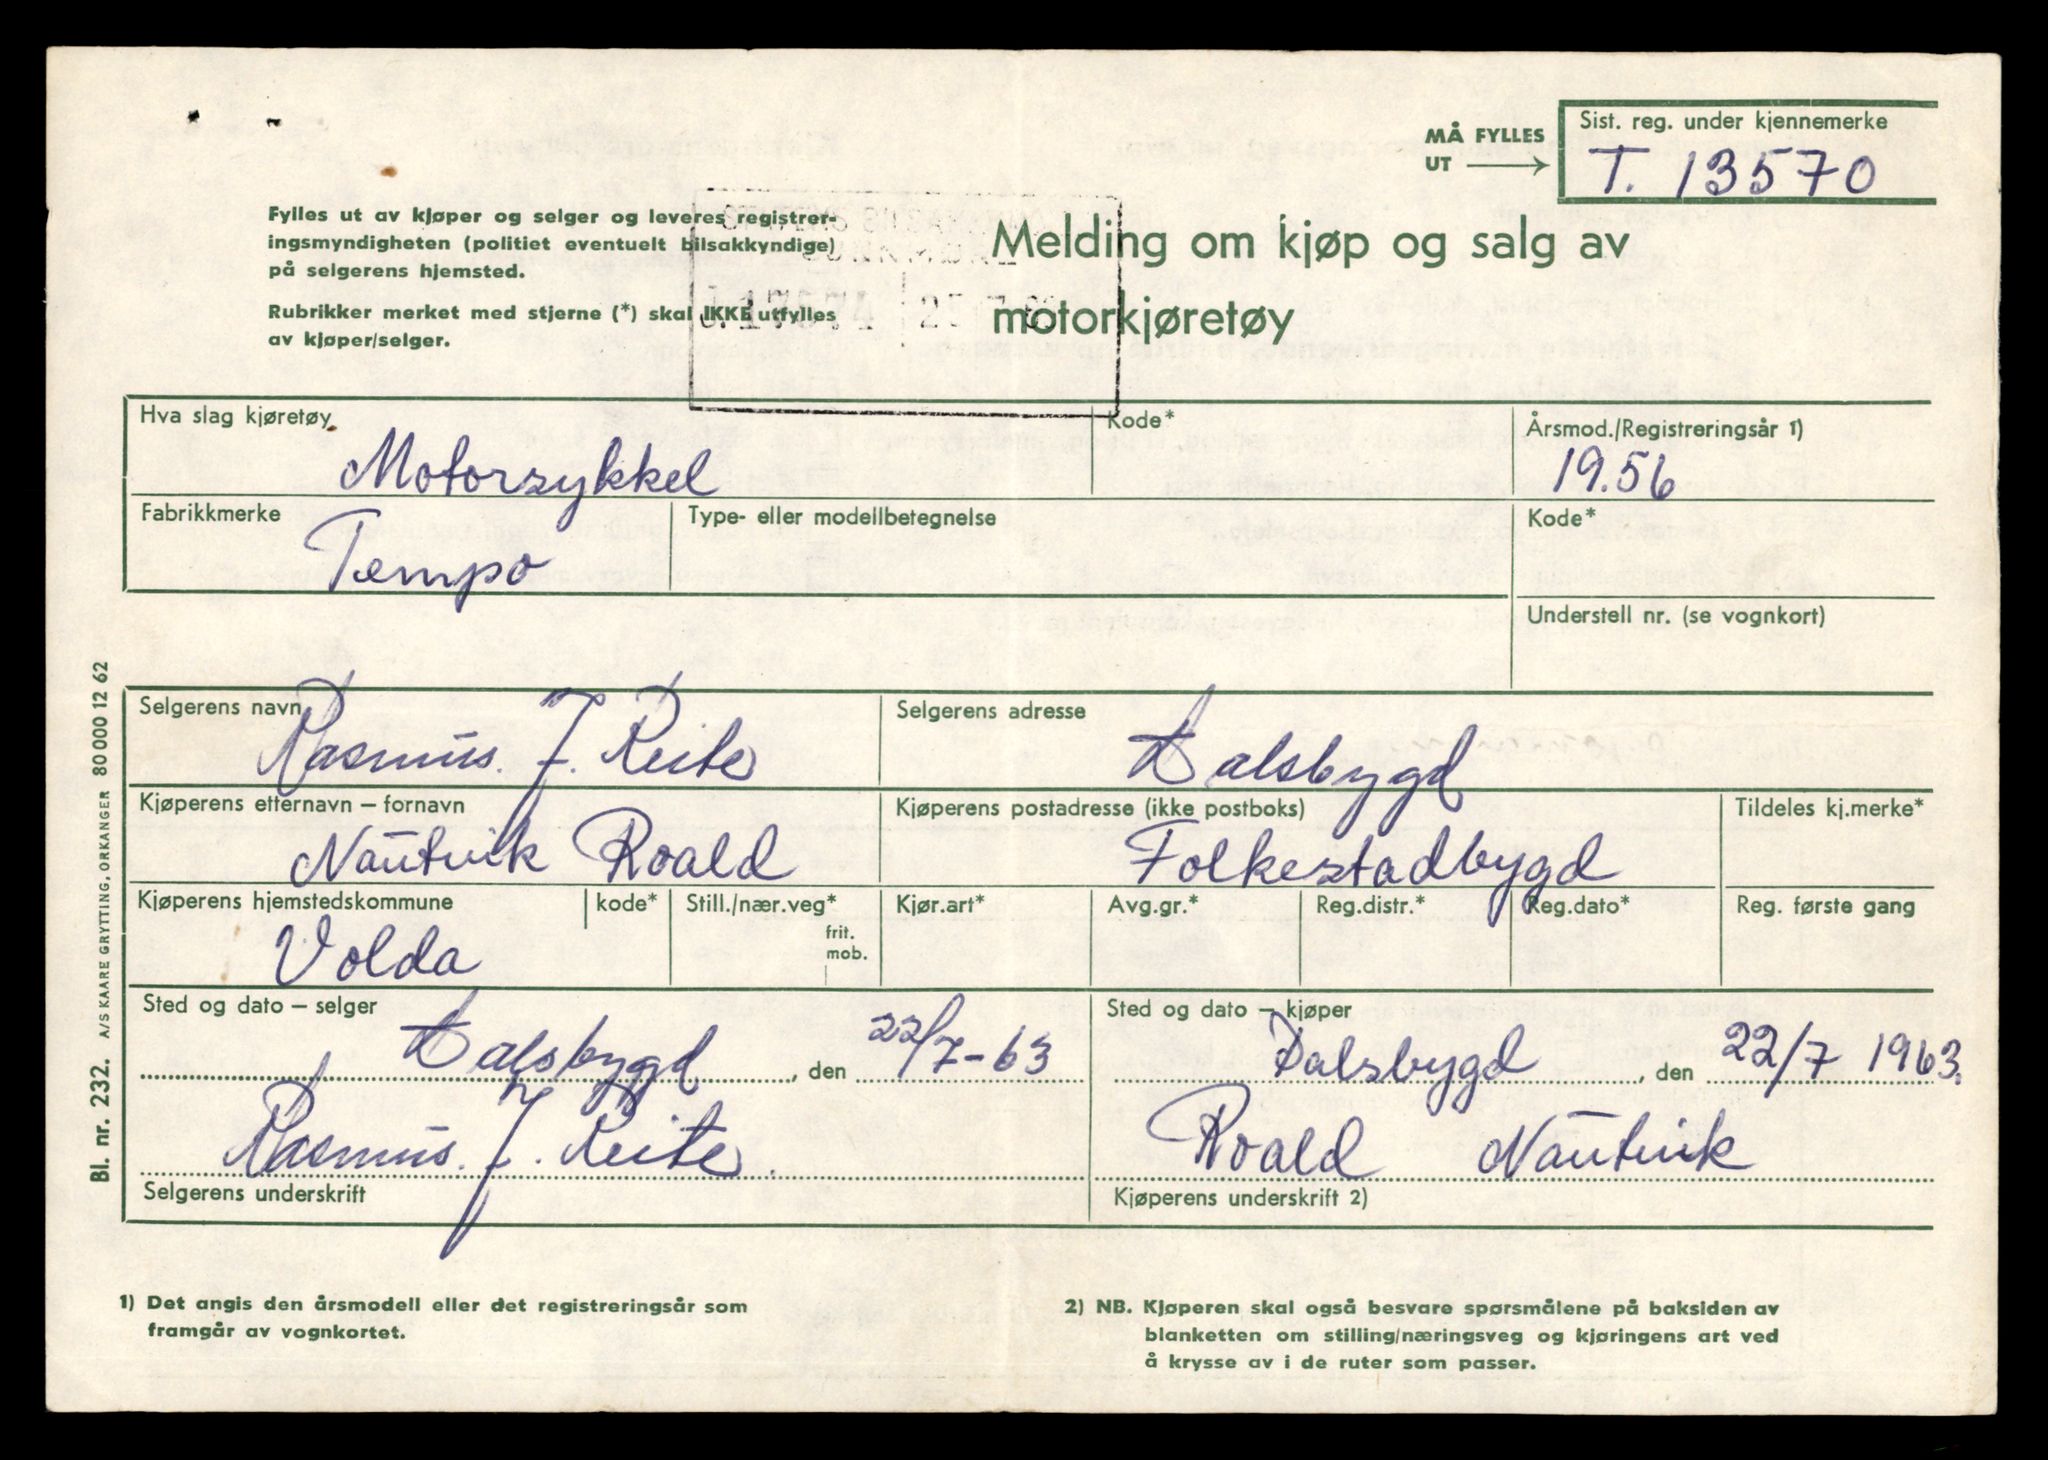 MÅ FYLLES
UT
Sist. reg. under kjennemerke
T. 13570
Fylles ut av kjøper og selger og leveres registrer-
ingsmyndigheten (politiet eventuelt bilsakkyndige)
på selgerens hjemsted.
Rubrikker merket med stjerne (*) skal IKKE utfylles
av kjøper/selger.
Melding om kjøp og salg av
motorkjøretøy
Hva slag kjøretøy
Motorsykkel
Kode*
Årsmod./Registreringsår 1)
19.56
Fabrikkmerke
Tempo
Type- eller modellbetegnelse
Kode*
Understell nr. (se vognkort)
Selgerens navn
Rasmus. J. Reite
Selgerens adresse
Dalsbygd
Kjøperens etternavn – fornavn
Nautvik Roald
Kjøperens postadresse (ikke postboks)
Folkestadbygd
Tildeles kj.merke*
Kjøperens hjemstedskommune
Volda
kode*
Still./nær.veg*
frit.
mob.
Kjør.art*
Avg.gr.*
Reg.distr.*
Reg.dato*
Reg. første gang
Sted og dato – selger
Dalsbygd, den 22/7-63
Rasmus. J. Reite.
Selgerens underskrift
Sted og dato – kjøper
Dalsbygd, den 22/7 1963.
Roald Nautvik
Kjøperens underskrift 2)
1) Det angis den årsmodell eller det registreringsår som
framgår av vognkortet.
2) NB. Kjøperen skal også besvare spørsmålene på baksiden av
blanketten om stilling/næringsveg og kjøringens art ved
å krysse av i de ruter som passer.
Bl. nr. 232. A/S KAARE GRYTTING, ORKANGER 80 000 12 62